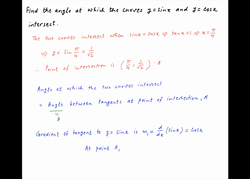 Find the angle at which the curves y = sinx and y = cosx
intersect.
The two curves intersect when sinx = cosx ⇒ tanx = 1 ⇒ x = π/4
⇒ y = sin π/4 = 1/√2
∴ Point of intersection is (π/4, 1/√2) : A
Angle at which the two curves intersect
= Angle between tangents at point of intersection, A
θ
Gradient of tangent to y = sinx is m₁ = d/dx (sinx) = cosx
At point A,